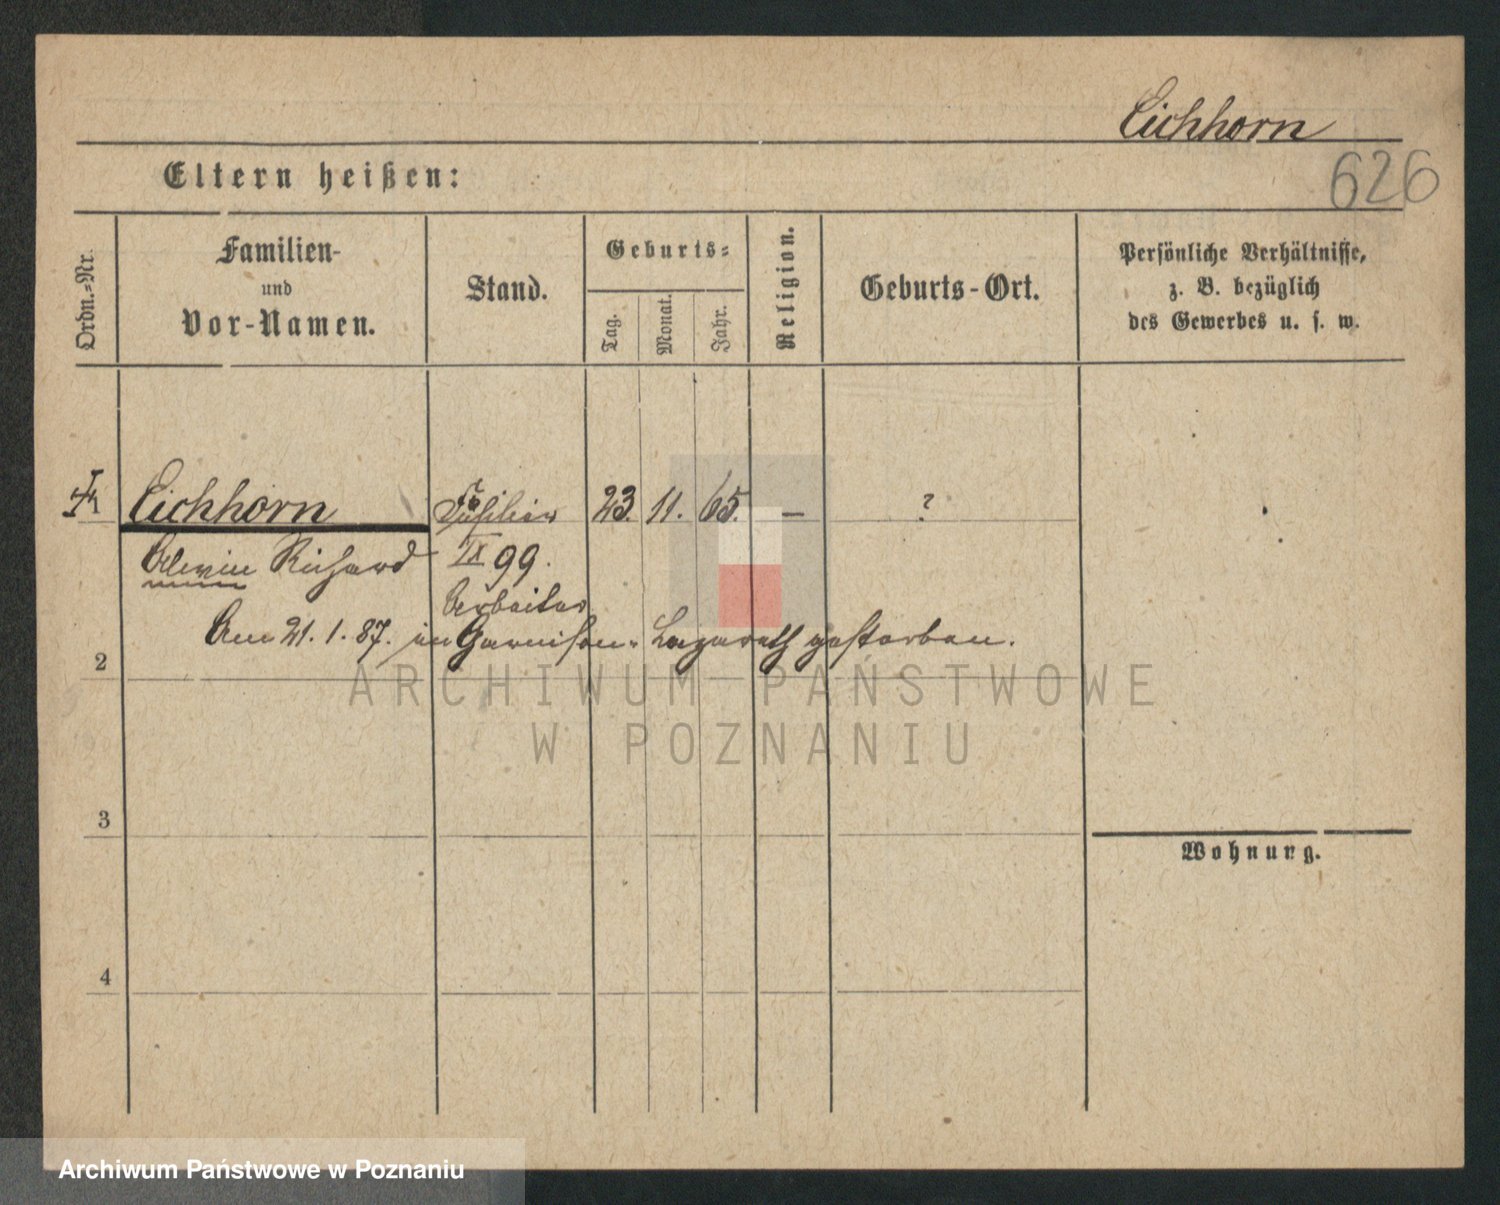 Eichhorn
626
Eltern heißen:
Ordn.-Nr.
Familien-
und
Vor-Namen.
Stand.
Geburts-
Tag.
Monat.
Jahr.
Religion.
Geburts-Ort.
Persönliche Verhältnisse,
z. B. bezüglich
des Gewerbes u. s. w.
Eichhorn Füsilier 23. 11. 65. — ?
Alwin Richard IX 99.
Arbeiter
Am 21. 1. 87. im Garnison-Lazareth gestorben.
2
ARCHIWUM PAŃSTWOWE
W POZNANIU
3
Wohnung.
4
Archiwum Państwowe w Poznaniu